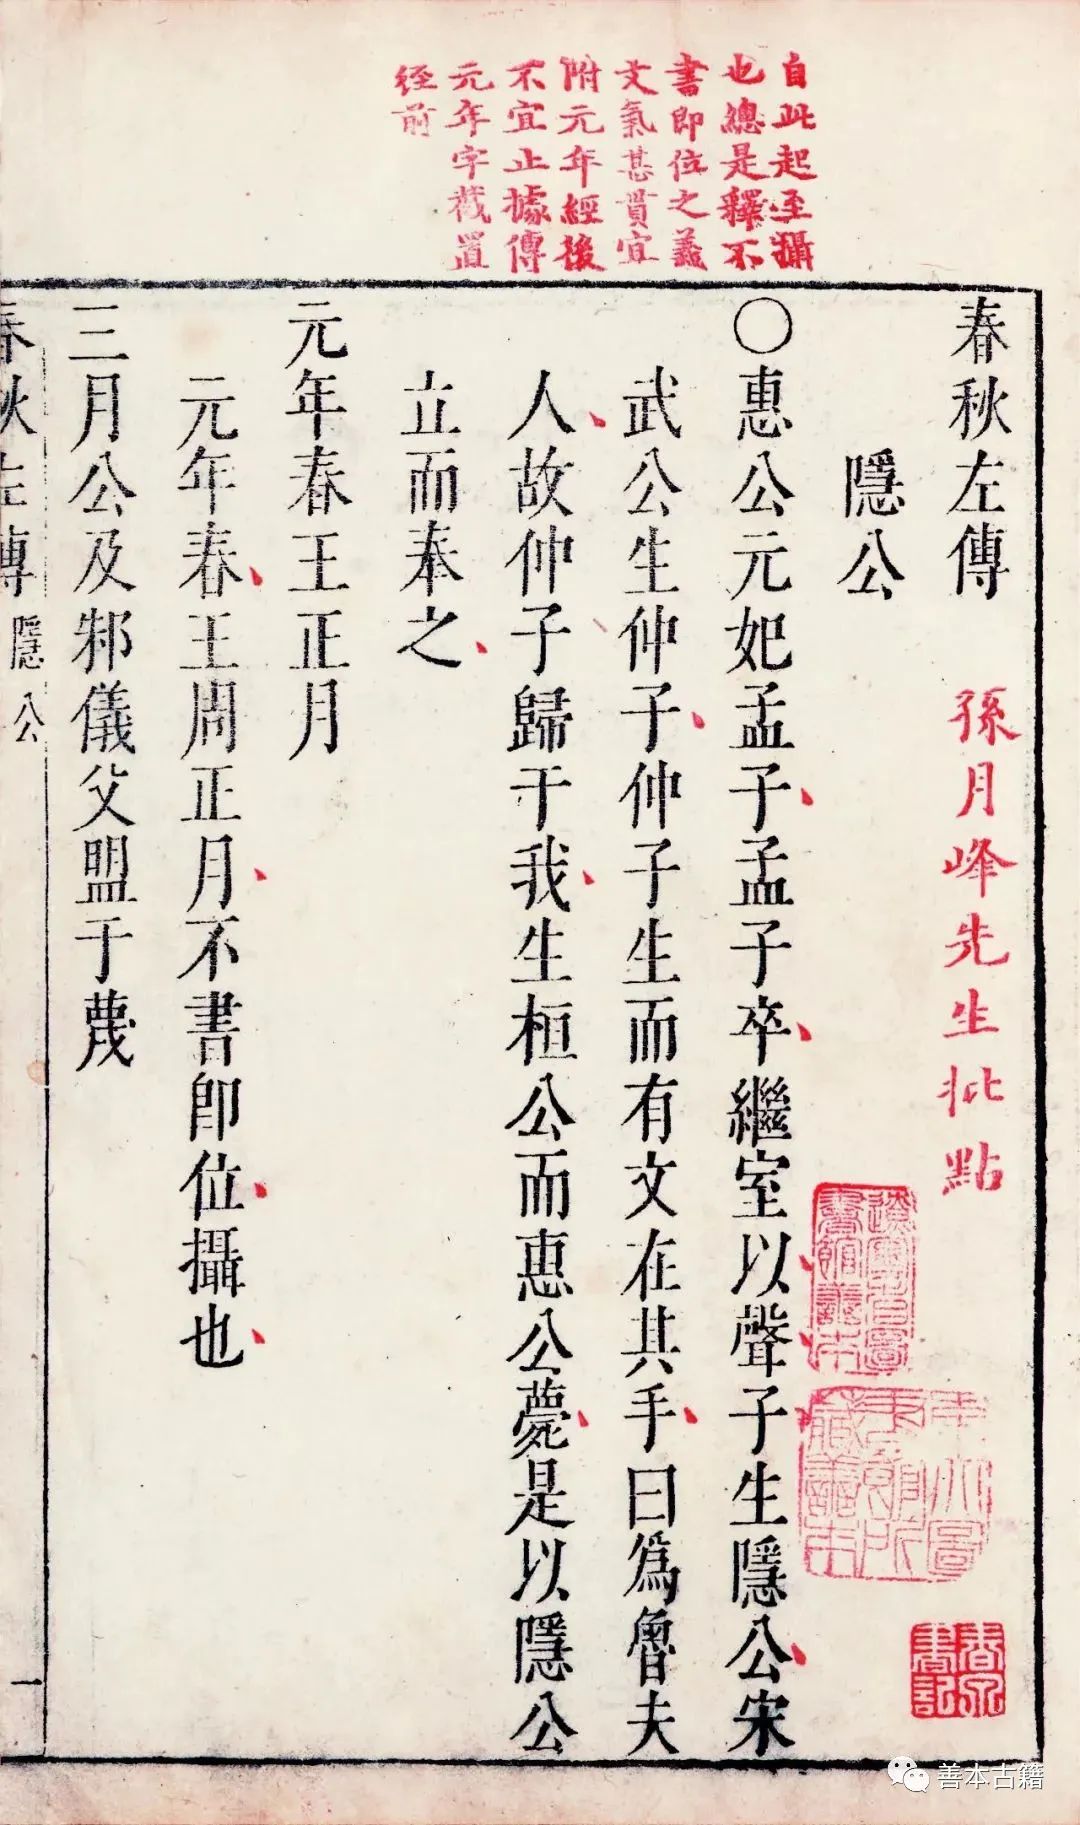 自此起至攝
也總是釋不
書即位之義
文氣甚貫宜
附元年經後
不宜止據傳
元年字截置
經前
春秋左傳
孫月峰先生批點
隱公
〇惠公元妃孟子孟子卒繼室以聲子生隱公宋
武公生仲子仲子生而有文在其手曰為魯夫
人故仲子歸于我生桓公而惠公薨是以隱公
立而奉之
元年春王正月
元年春王周正月不書即位攝也
三月公及邾儀父盟于蔑
春秋左傳 隱公
一
善本古籍